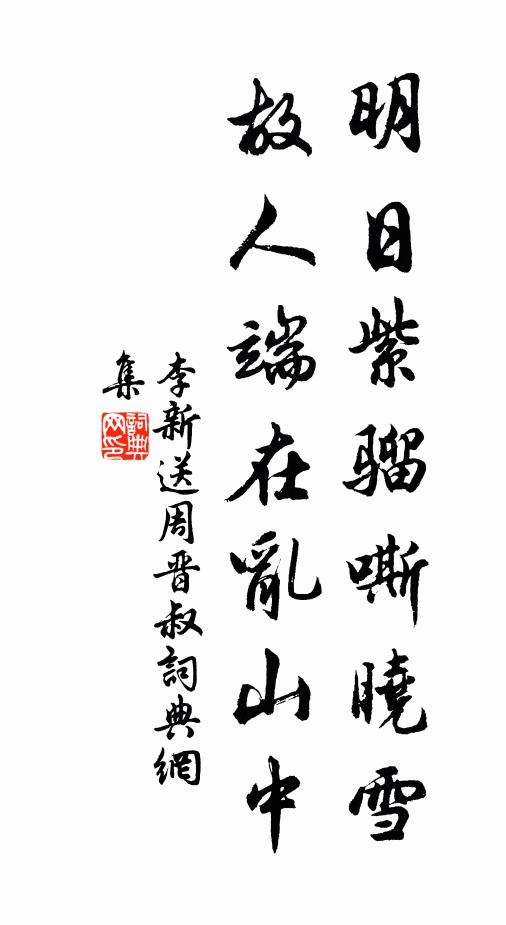 明日紫骝嘶曉雪
故人端在亂山中
李新送周晋叔詞典網
集
詞典
网印